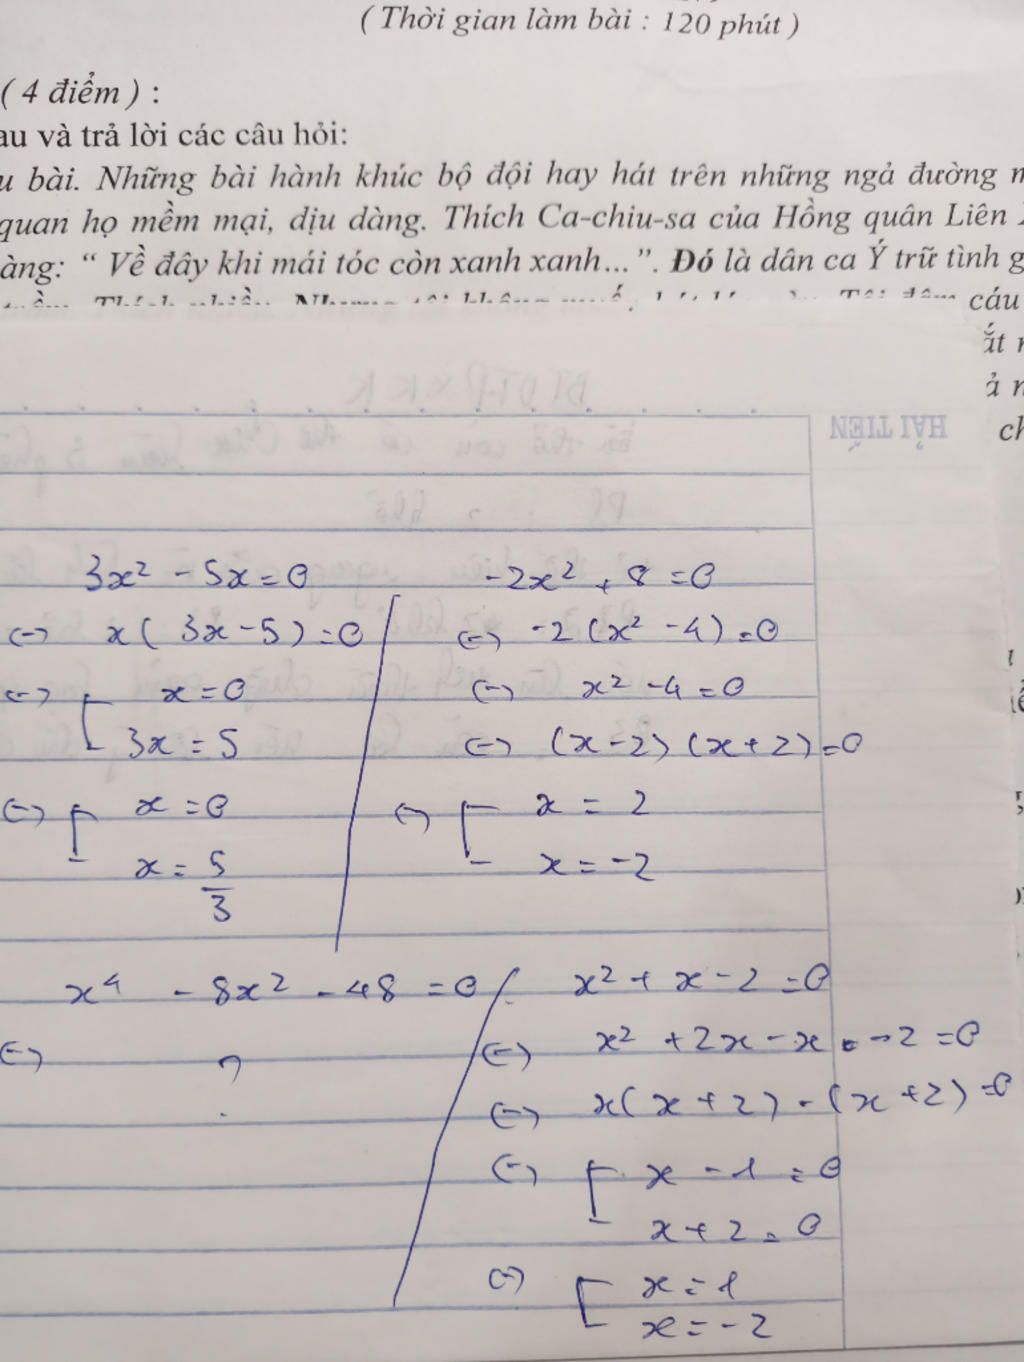 ( Thời gian làm bài : 120 phút )
( 4 điểm ) :
au và trả lời các câu hỏi:
u bài. Những bài hành khúc bộ đội hay hát trên những ngả đường
quan họ mềm mại, dịu dàng. Thích Ca-chiu-sa của Hồng quân Liên
àng: “ Về đây khi mái tóc còn xanh xanh... ”. Đó là dân ca Ý trữ tình g
cáu
ắt
ả
ch
HẢI TIẾN
3x² - 5x = 0
(-) x( 3x - 5) = 0
(-) [ x = 0
3x = 5
(-) [ x = 0
x = 5/3
-2x² + 8 = 0
(-) -2 (x² - 4) = 0
(-) x² - 4 = 0
(-) (x - 2) (x + 2) = 0
(-) [ x = 2
x = -2
x⁴ - 8x² - 48 = 0
(-) ?
x² + x - 2 = 0
(-) x² + 2x - x - 2 = 0
(-) x( x + 2) - (x + 2) = 0
(-) [ x - 1 = 0
x + 2 = 0
(-) [ x = 1
x = -2